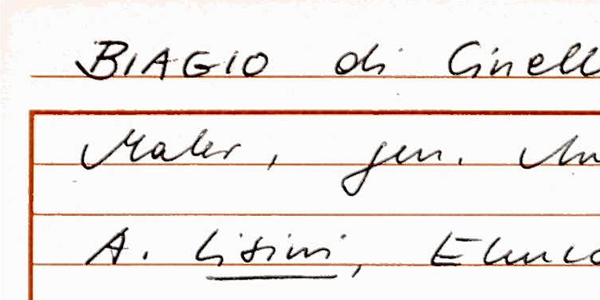 BIAGIO di Cinell
Maler, gen.
A. Lisini, Elenco